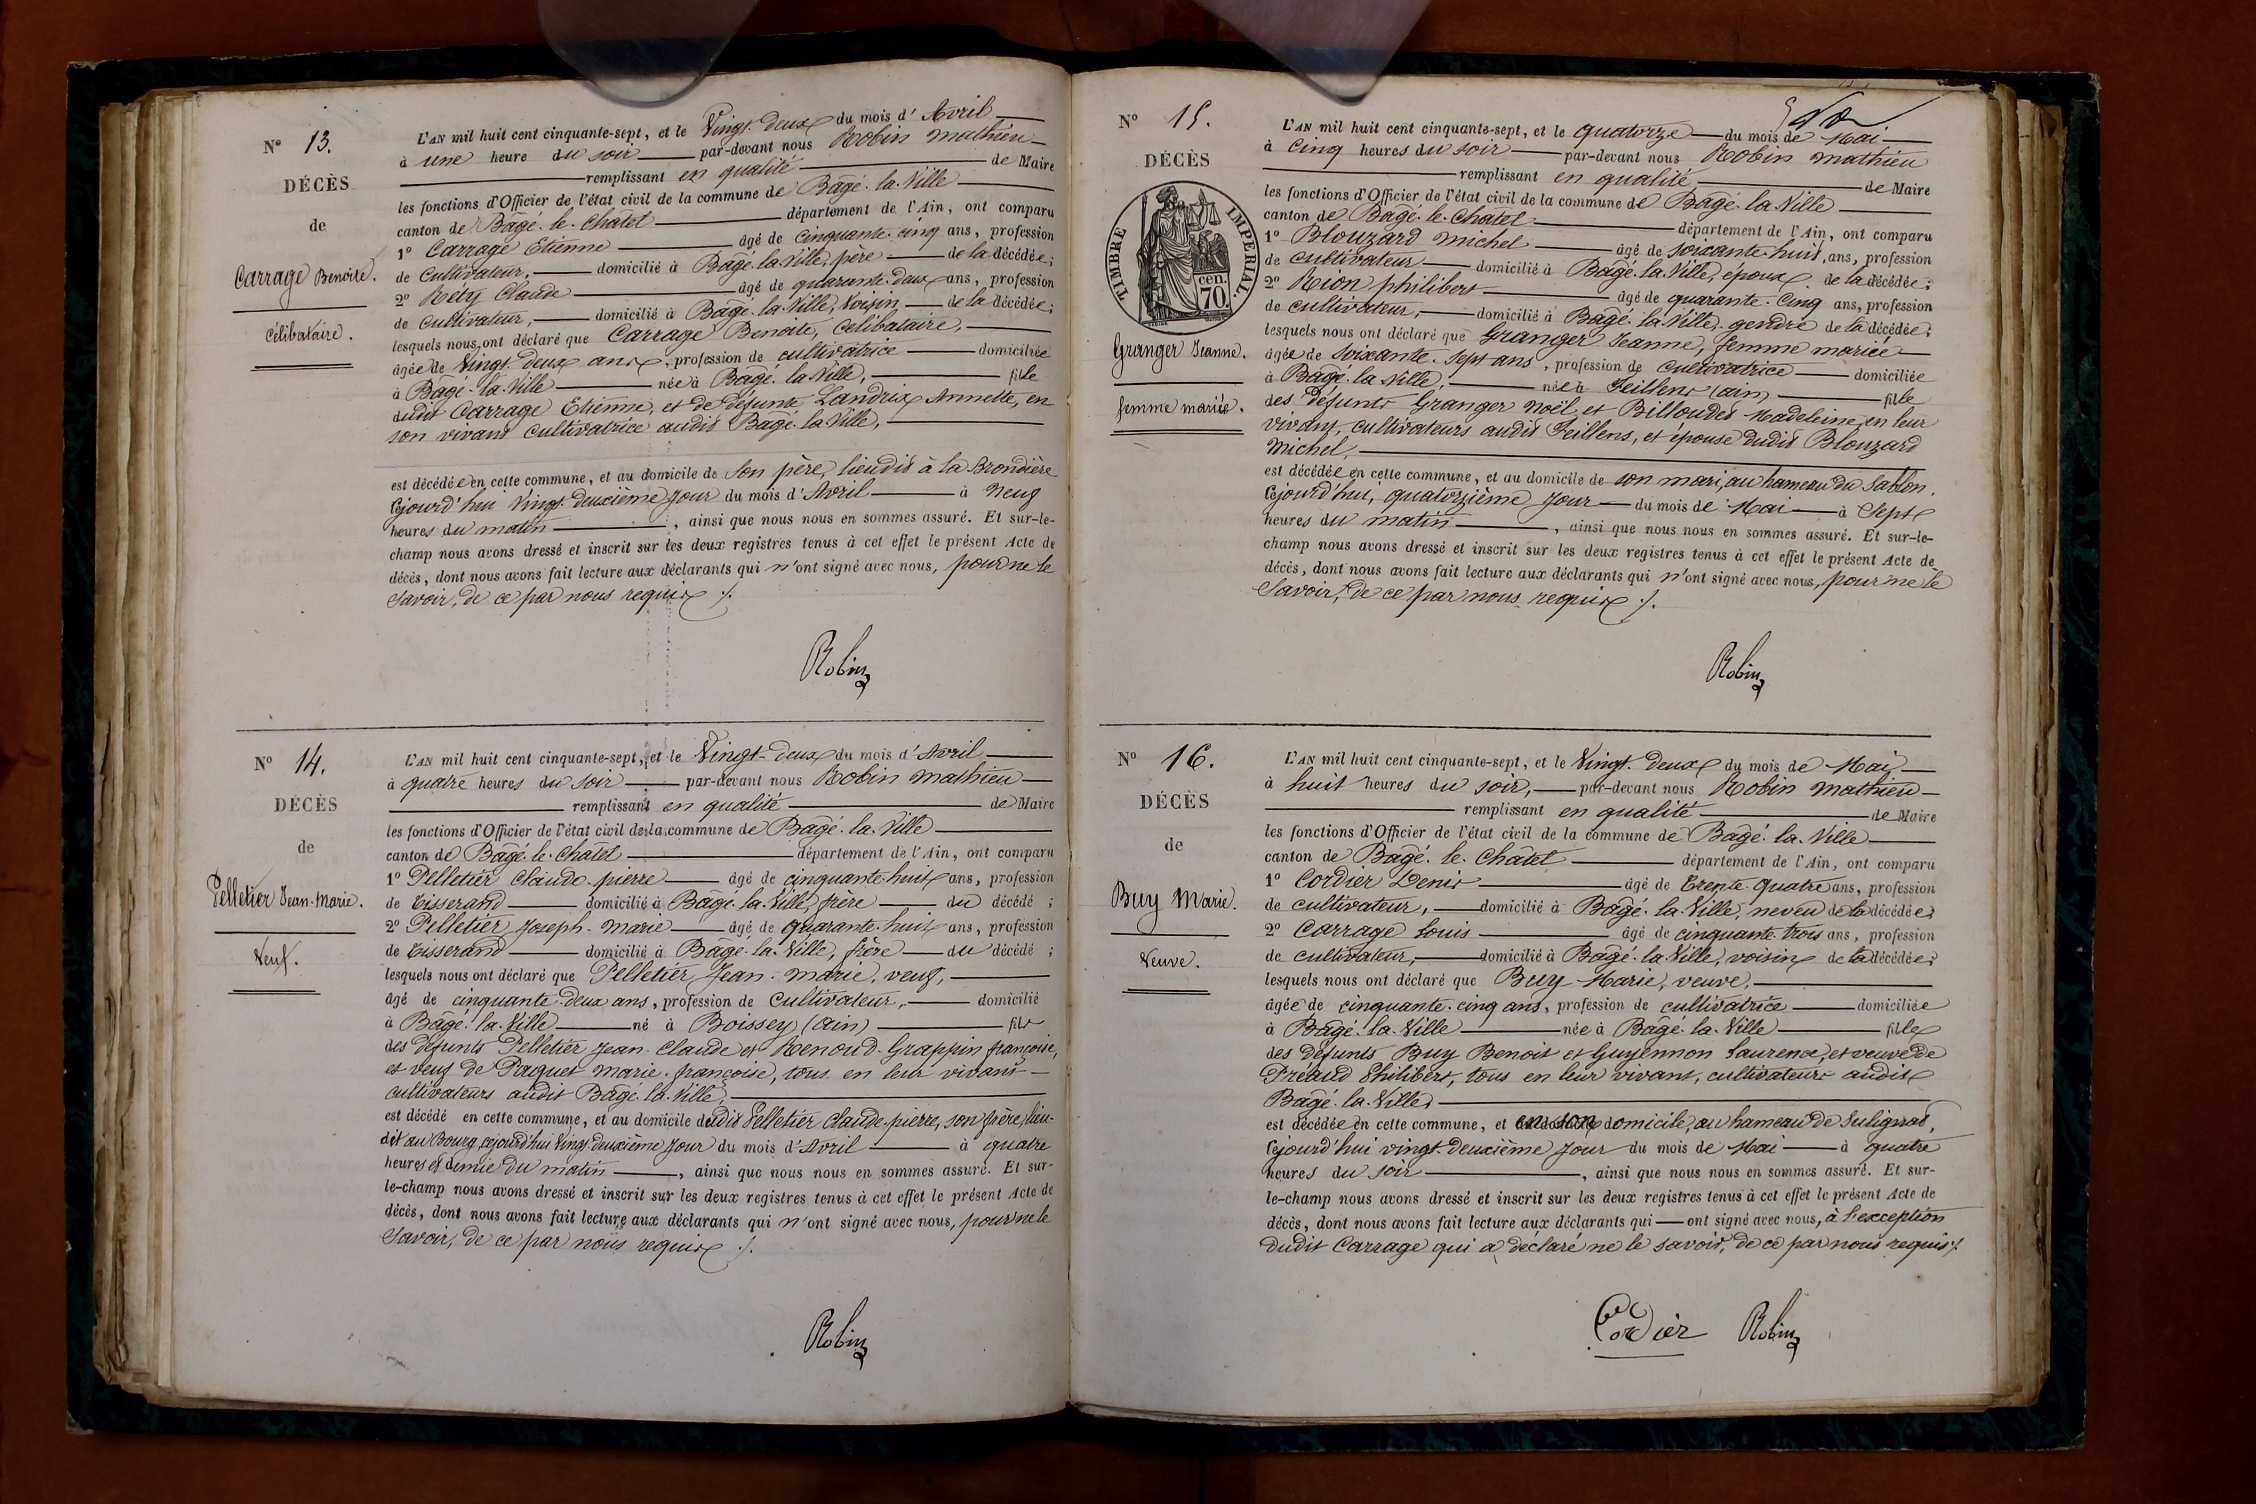 Nº 13.
DÉCÈS
de
Carrage Benoite.
célibataire.
L'AN mil huit cent cinquante-sept, et le Vingt-deux du mois d'Avril
à une heure du soir par-devant nous Robin Mathieu
remplissant en qualité de Maire
les fonctions d'Officier de l'état civil de la commune de Bâgé-la-Ville
canton de Bâgé-le-Chatel département de l'Ain, ont comparu
1º Carrage Etienne âgé de cinquante-cinq ans, profession
de Cultivateur, domicilié à Bâgé-la-Ville, père de la décédée;
2º Réty Claude âgé de quarante-deux ans, profession
de Cultivateur, domicilié à Bâgé-la-Ville, Voisin de la décédée;
lesquels nous ont déclaré que Carrage Benoite, Célibataire,
âgée de Vingt-deux ans, profession de cultivatrice domiciliée
à Bâgé-la-Ville née à Bâgé-la-Ville, fille
dudit Carrage Etienne, et de défunte Landrix Annette, en
son vivant cultivatrice audit Bâgé-la-Ville,
est décédée en cette commune, et au domicile de son père, lieudit à la Brondière
cejourd'hui Vingt-deuxième jour du mois d'Avril à neuf
heures du matin, ainsi que nous nous en sommes assuré. Et sur-le-
champ nous avons dressé et inscrit sur les deux registres tenus à cet effet le présent Acte de
décès, dont nous avons fait lecture aux déclarants qui n'ont signé avec nous, pour ne le
savoir, de ce par nous requis ./.
Robin
Nº 14.
DÉCÈS
de
Pelletier Jean-Marie.
Veuf.
L'AN mil huit cent cinquante-sept, et le Vingt-deux du mois d'Avril
à quatre heures du soir par-devant nous Robin Mathieu
remplissant en qualité de Maire
les fonctions d'Officier de l'état civil de la commune de Bâgé-la-Ville
canton de Bâgé-le-Chatel département de l'Ain, ont comparu
1º Pelletier Claude-pierre âgé de cinquante-huit ans, profession
de Tisserand domicilié à Bâgé-la-Ville, frère du décédé;
2º Pelletier Joseph-Marie âgé de quarante-huit ans, profession
de Tisserand domicilié à Bâgé-la-Ville, frère du décédé;
lesquels nous ont déclaré que Pelletier Jean-Marie, veuf,
âgé de cinquante-deux ans, profession de Cultivateur, domicilié
à Bâgé-la-Ville né à Boissey (Ain) fils
des défunts Pelletier Jean-Claude et Renoud-Grappin françoise,
et veuf de Paquet Marie-françoise, tous en leur vivant
cultivateurs audit Bâgé-la-Ville,
est décédé en cette commune, et au domicile dudit Pelletier Claude-pierre, son frère, lieu-
dit au Bourg, cejourd'hui Vingt-deuxième jour du mois d'Avril à quatre
heures et demie du matin, ainsi que nous nous en sommes assuré. Et sur-
le-champ nous avons dressé et inscrit sur les deux registres tenus à cet effet le présent Acte de
décès, dont nous avons fait lecture aux déclarants qui n'ont signé avec nous, pour ne le
savoir, de ce par nous requis ./.
Robin
Nº 15.
DÉCÈS
TIMBRE IMPERIAL.
70 cen.
Granger Jeanne.
femme mariée.
L'AN mil huit cent cinquante-sept, et le quatorze du mois de Mai
à cinq heures du soir par-devant nous Robin Mathieu
remplissant en qualité de Maire
les fonctions d'Officier de l'état civil de la commune de Bâgé-la-Ville
canton de Bâgé-le-Chatel département de l'Ain, ont comparu
1º Blouzard Michel âgé de soixante-huit ans, profession
de cultivateur domicilié à Bâgé-la-Ville, époux de la décédée;
2º Rion philibert âgé de quarante-cinq ans, profession
de cultivateur, domicilié à Bâgé-la-Ville, gendre de la décédée;
lesquels nous ont déclaré que Granger Jeanne, femme mariée
âgée de soixante-sept ans, profession de Cultivatrice domiciliée
à Bâgé-la-Ville, née à Feillens (Ain) fille
des défunts Granger Noël et Billoudet Madeleine, en leur
vivant, cultivateurs audit Feillens, et épouse dudit Blouzard
Michel,
est décédée en cette commune, et au domicile de son mari, au hameau du Sablon,
cejourd'hui, quatorzième jour du mois de Mai à Sept
heures du matin, ainsi que nous nous en sommes assuré. Et sur-le-
champ nous avons dressé et inscrit sur les deux registres tenus à cet effet le présent Acte de
décès, dont nous avons fait lecture aux déclarants qui n'ont signé avec nous, pour ne le
savoir, de ce par nous requis ./.
Robin
Nº 16.
DÉCÈS
de
Buy Marie.
Veuve.
L'AN mil huit cent cinquante-sept, et le Vingt-deux du mois de Mai
à huit heures du soir, par-devant nous Robin Mathieu
remplissant en qualité de Maire
les fonctions d'Officier de l'état civil de la commune de Bâgé-la-Ville
canton de Bâgé-le-Châtel département de l'Ain, ont comparu
1º Cordier Denis âgé de trente-quatre ans, profession
de cultivateur, domicilié à Bâgé-la-Ville, neveu de la décédée;
2º Carrage Louis âgé de cinquante-trois ans, profession
de cultivateur, domicilié à Bâgé-la-Ville, voisin de la décédée;
lesquels nous ont déclaré que Buy Marie, veuve,
âgée de cinquante-cinq ans, profession de cultivatrice domiciliée
à Bâgé-la-Ville née à Bâgé-la-Ville fille
des défunts Buy Benoit et Guyennon Laurence, et veuve de
Préaud Philibert, tous en leur vivant, cultivateurs audit
Bâgé-la-Ville,
est décédée en cette commune, et en son domicile, au hameau de
cejourd'hui vingt-deuxième jour du mois de Mai à quatre
heures du soir, ainsi que nous nous en sommes assuré. Et sur-
le-champ nous avons dressé et inscrit sur les deux registres tenus à cet effet le présent Acte de
décès, dont nous avons fait lecture aux déclarants qui ont signé avec nous, à l'exception
dudit Carrage qui a déclaré ne le savoir, de ce par nous requis ./.
Cordier Robin